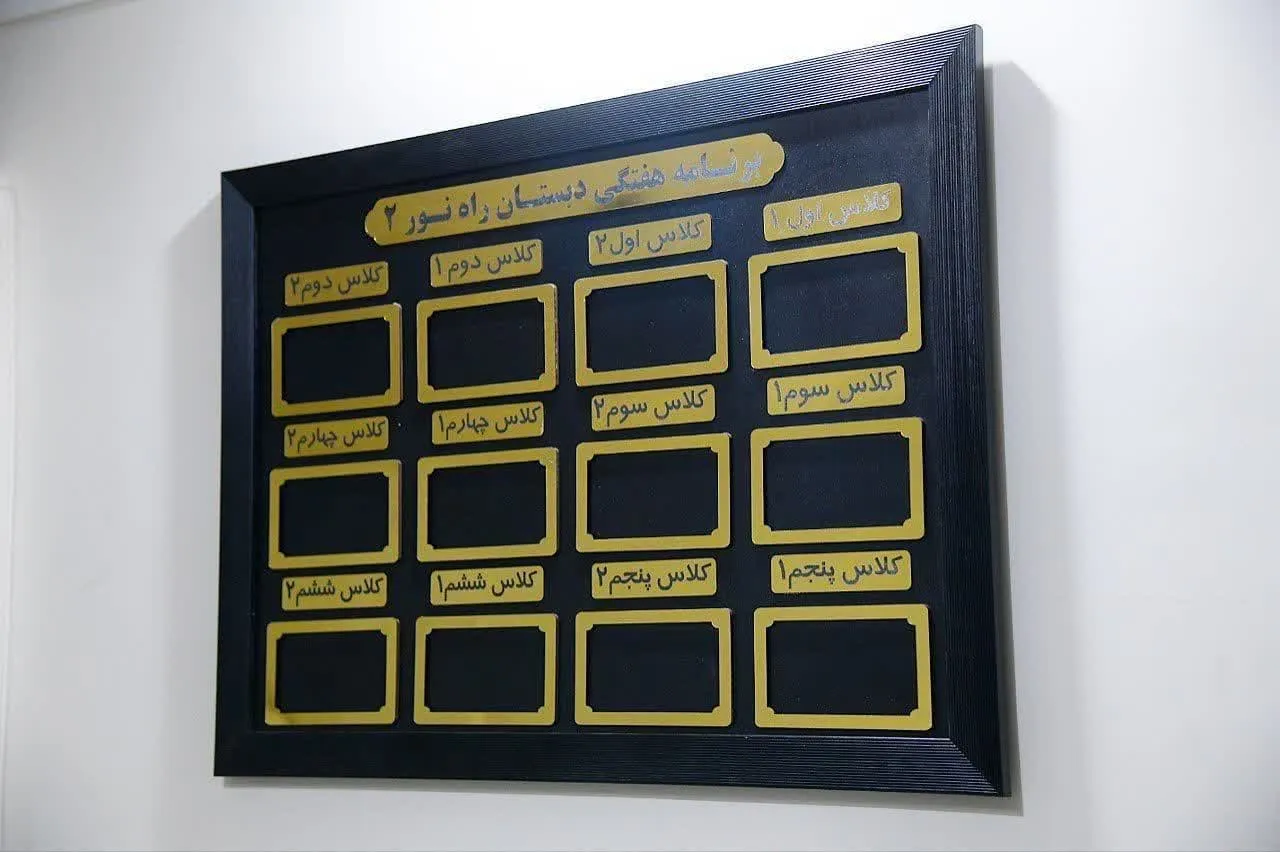 برنامه هفتگی دبستان راه نور ۲
کلاس اول ۱
کلاس اول۲
کلاس دوم ۱
کلاس دوم۲
کلاس سوم۱
کلاس سوم۲
کلاس چهارم۱
کلاس چهارم۲
کلاس پنجم۱
کلاس پنجم۲
کلاس ششم۱
کلاس ششم۲